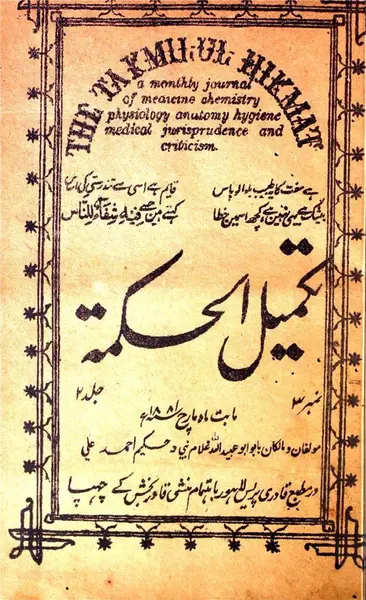 THE TAKMIL-UL HIKMAT
a monthly journal
of medicine chemistry
physiology anatomy hygiene
medical jurisprudence and
criticism.
قائم ہے اسی سے تندرستی کی
بیشک نہیں کچھ اسمین خطا کہتے ہین جسے فیه شفاء للناس
تکمیل الحکمة
نمبر ۳ جلد ۲
بابت ماہ مارچ سنہ ۱۸۸۱ء
مولفان و مالکان بابو ابو عبید اللہ غلام نبی و حکیم احمد علی
در مطبع قادری پریس لاہور باہتمام منشی قادر بخش کے چھپا